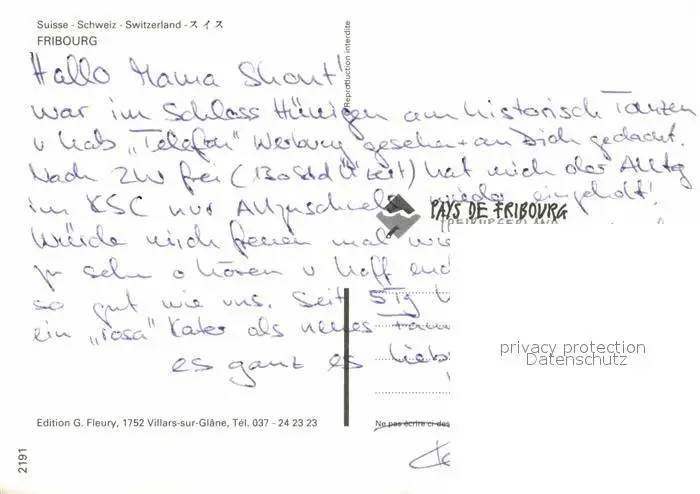 Suisse - Schweiz - Switzerland - スイス
FRIBOURG
Reproduction interdite
Hallo Mama Shont!
war im Schloss Hünigen am historisch Tanzen
u hab „Telefon" Werbung gesehen + an Dich gedacht.
Nach 2W frei (130 Std Überzt) hat mich der Alltg
im KSC nur Allzuschnell wieder eingeholt!
PAYS DE FRIBOURG
Würde mich freuen mal
zu sehn o hören u hoff
so gut wie uns. Seit 5Tg
ein „rosa" Kater als neues
es ganz es lieb
Edition G. Fleury, 1752 Villars-sur-Glâne, Tél. 037 - 24 23 23
Ne pas écrire ci-des
2191
privacy protection
Datenschutz